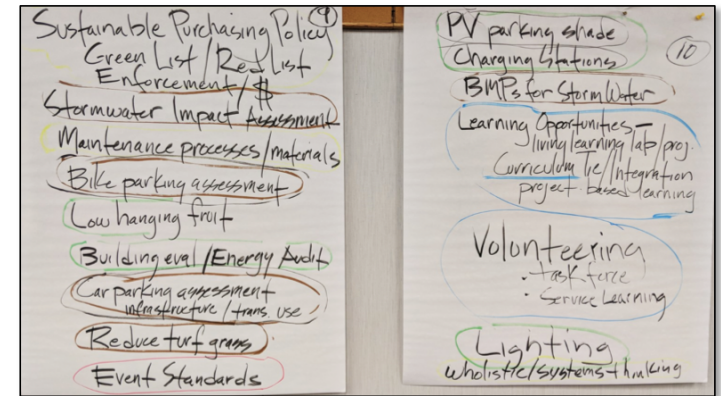 Sustainable Purchasing Policy
9
Green List/Red List
Enforcement/$
Stormwater Impact Assessment
Maintenance processes/materials
Bike parking assessment
Low hanging fruit
Building eval/Energy Audit
Car parking assessment
infrastructure/trans. use
Reduce turf grass
Event Standards
PV parking shade
10
Charging Stations
BMPs for Storm Water
Learning Opportunities -
living learning lab/proj.
Curriculum Tie/Integration
project-based learning
Volunteering
• task force
• Service Learning
Lighting
Wholistic/systems thinking